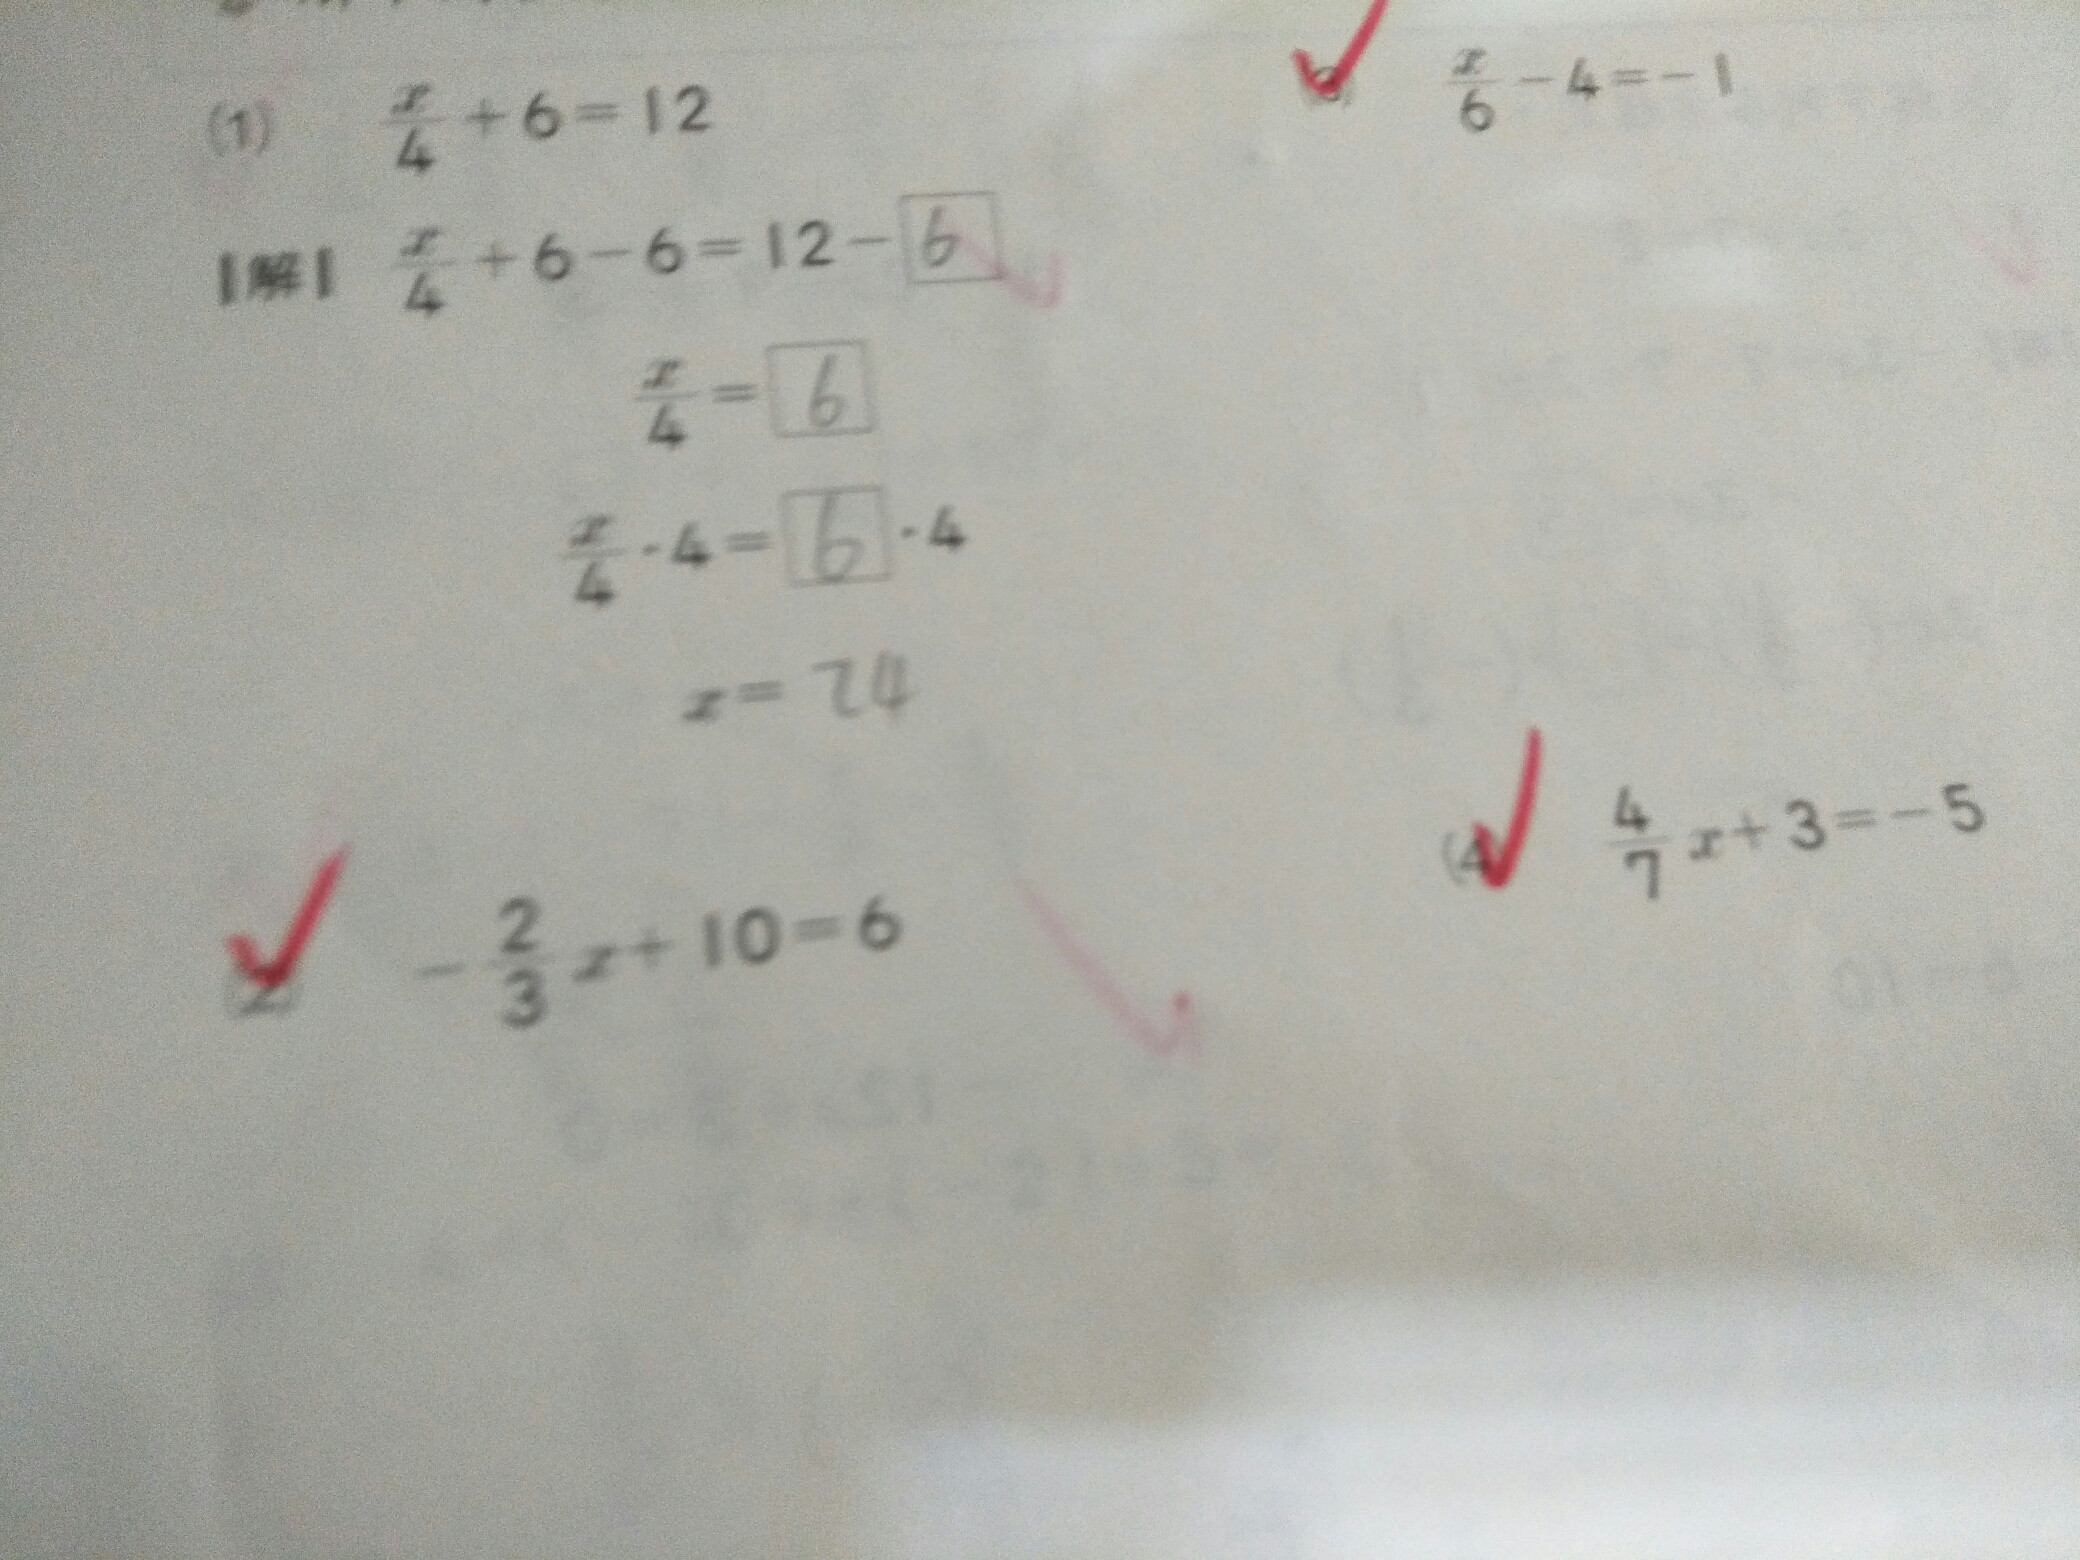 (1) x/4 + 6 = 12
【解】 x/4 + 6 − 6 = 12 − 6
x/4 = 6
x/4 · 4 = 6 · 4
x = 24
(2) − 2/3 x + 10 = 6
x/6 − 4 = − 1
(4) 4/7 x + 3 = − 5